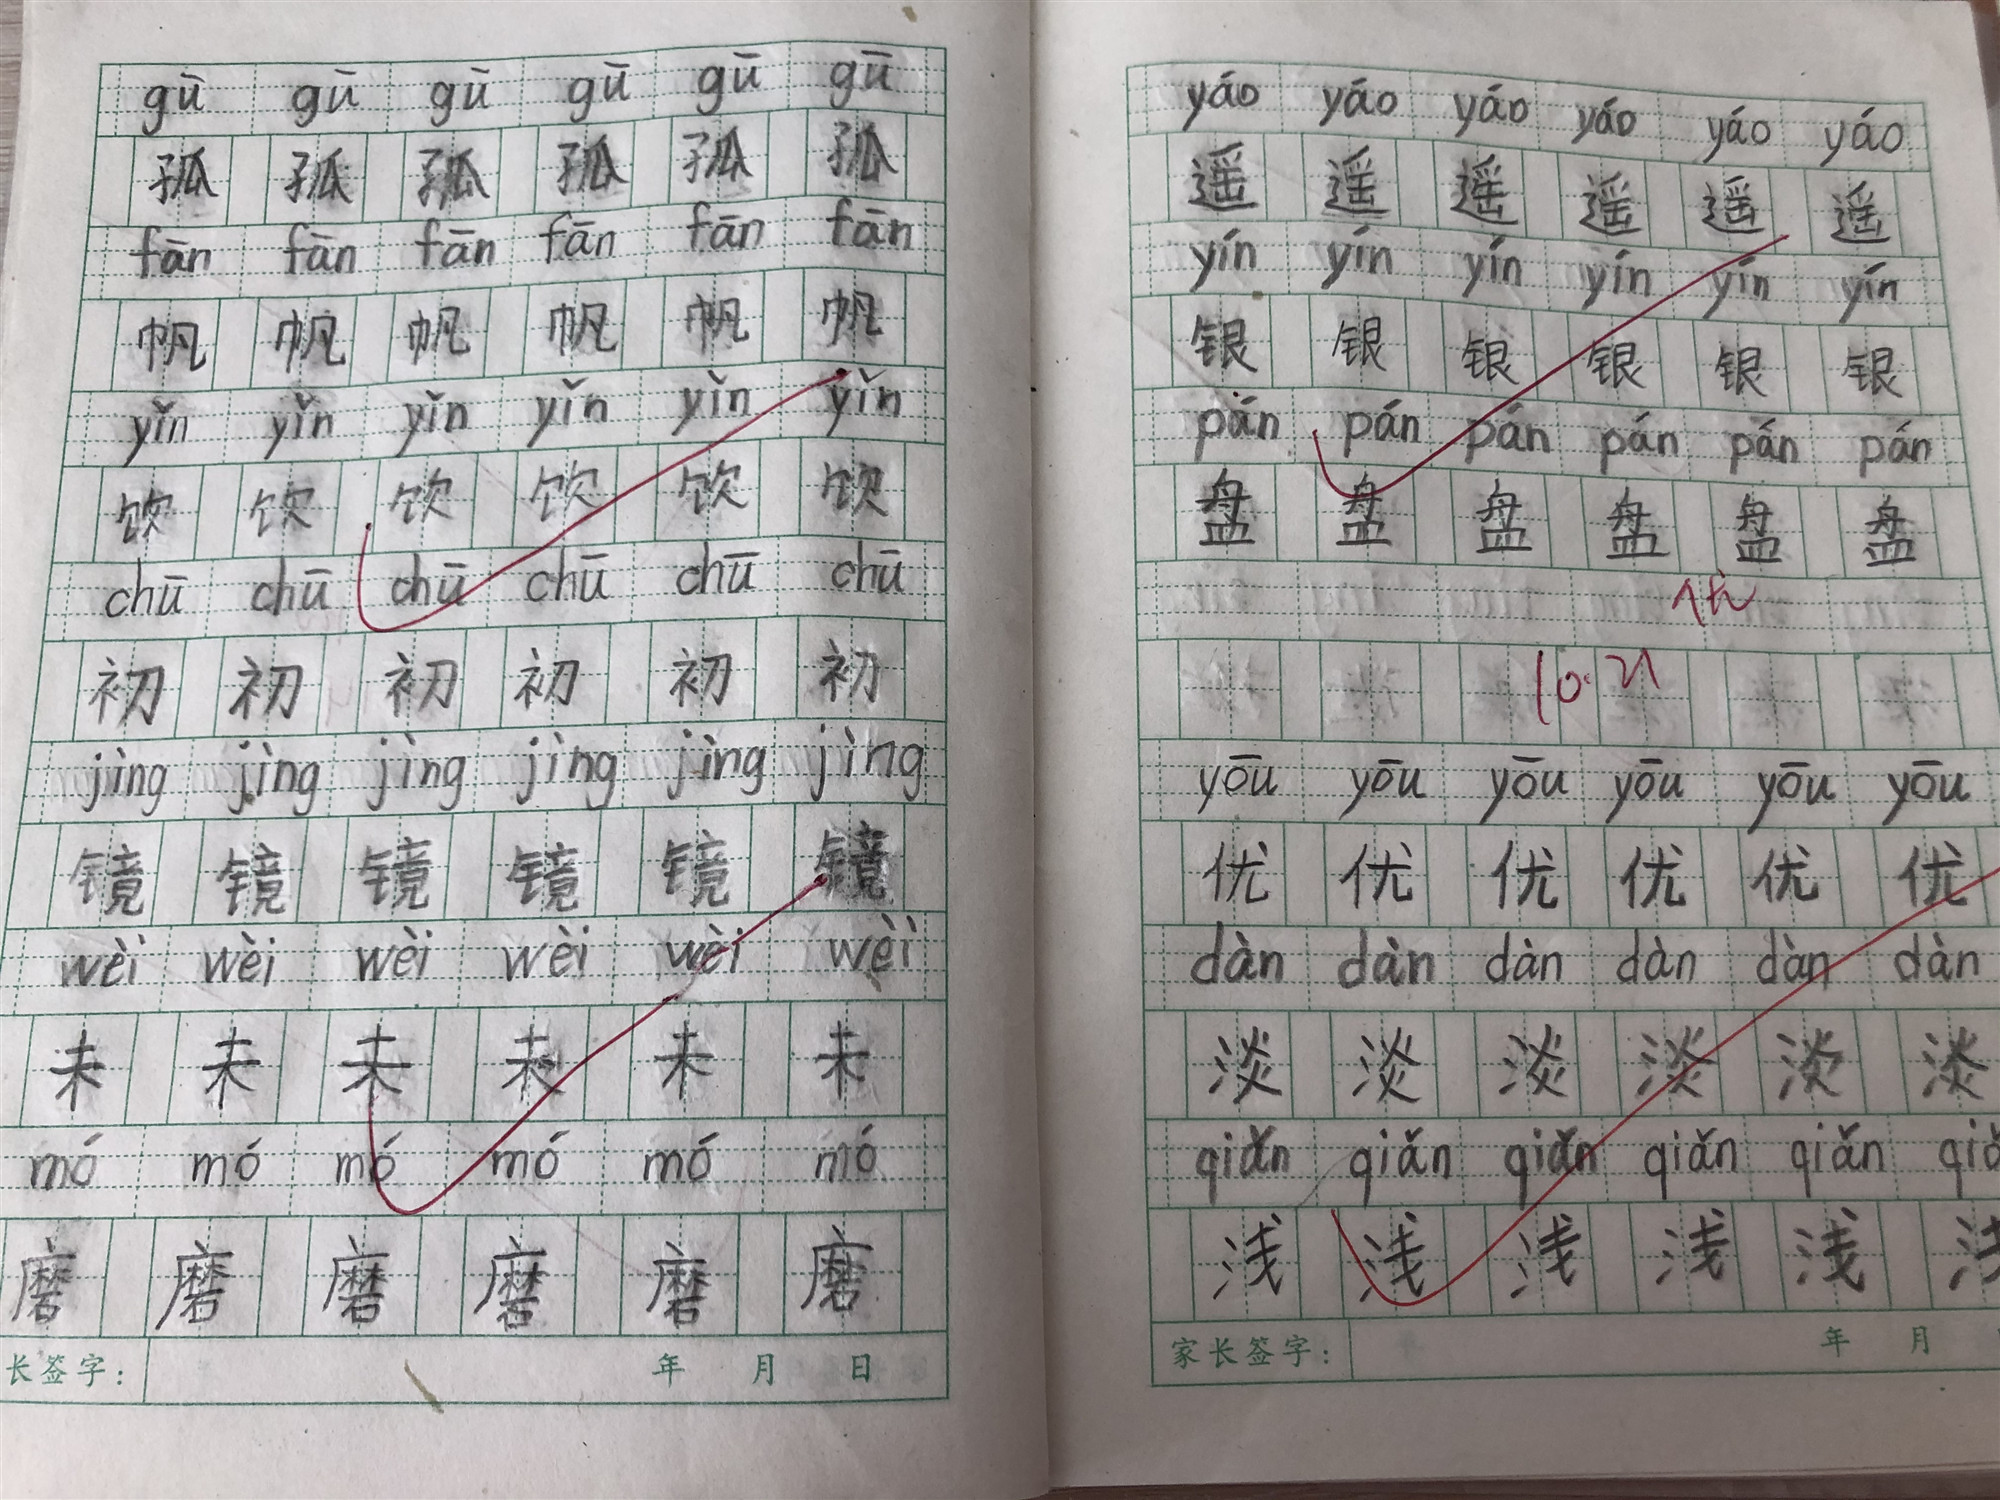 gū gū gū gū gū gū
孤 孤 孤 孤 孤 孤
fān fān fān fān fān fān
帆 帆 帆 帆 帆 帆
yǐn yǐn yǐn yǐn yǐn yǐn
饮 饮 饮 饮 饮 饮
chū chū chū chū chū chū
初 初 初 初 初 初
jìng jìng jìng jìng jìng jìng
镜 镜 镜 镜 镜 镜
wèi wèi wèi wèi wèi wèi
未 未 未 未 未 未
mó mó mó mó mó mó
磨 磨 磨 磨 磨 磨
长签字: 年 月 日
yáo yáo yáo yáo yáo yáo
遥 遥 遥 遥 遥 遥
yín yín yín yín yín yín
银 银 银 银 银 银
pán pán pán pán pán pán
盘 盘 盘 盘 盘 盘
优
10.21
yōu yōu yōu yōu yōu yōu
优 优 优 优 优 优
dàn dàn dàn dàn dàn dàn
淡 淡 淡 淡 淡 淡
qiǎn qiǎn qiǎn qiǎn qiǎn qiǎ
浅 浅 浅 浅 浅 浅
家长签字: 年 月